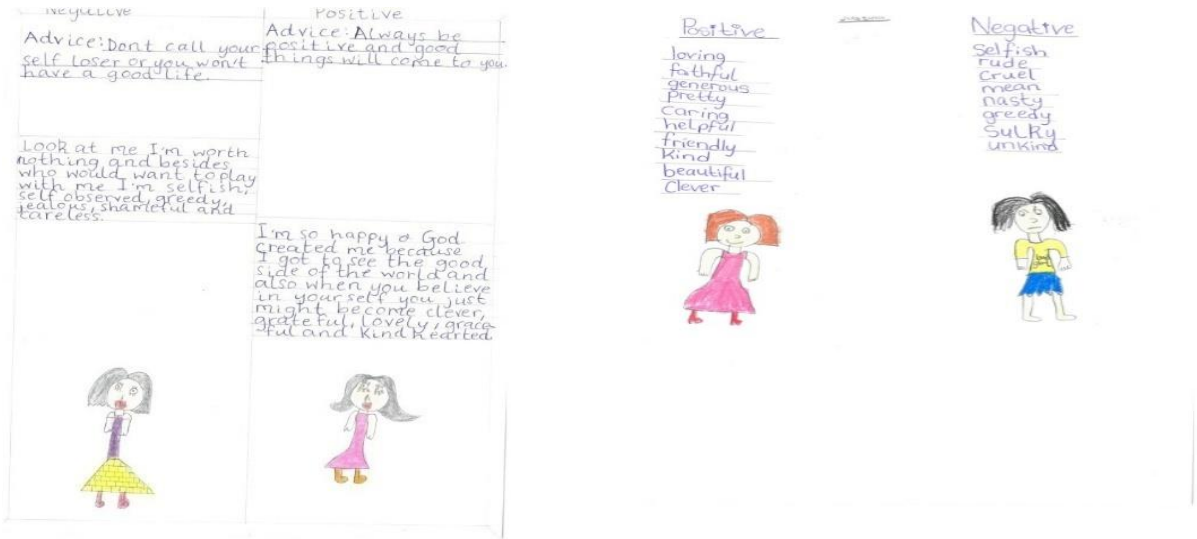 Negative
Advice: Dont call your
self loser or you won't
have a good life.
Look at me I'm worth
nothing and besides
who would want to play
with me I'm selfish,
self observed, greedy,
jealous, shameful and
careless.
Positive
Advice: Always be
positive and good
things will come to you.
I'm so happy God
created me because
I got to see the good
side of the world and
also when you believe
in your self you just
might become clever,
grateful, lovely, grace
ful and kind hearted
Positive
loving
faithful
generous
Pretty
Caring
helpful
friendly
Kind
beautiful
Clever
Negative
Selfish
rude
Cruel
mean
nasty
greedy
Sulky
unkind